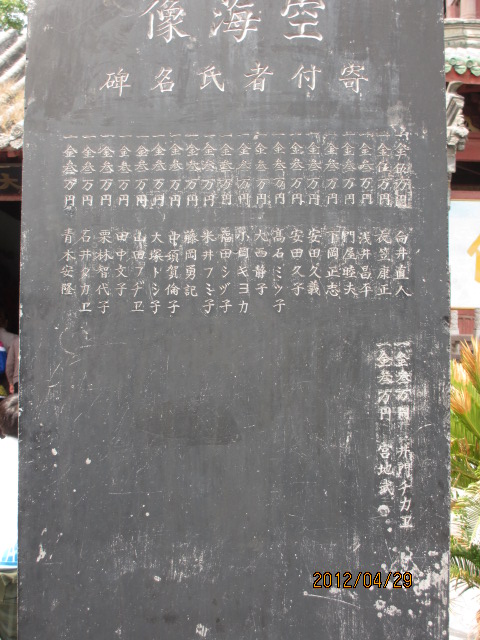 空海像
寄付者氏名碑
一金伍万円 白井直人
一金伍万円 花笠康正
一金叁万円 浅井昌平
一金叁万円 門屋睦夫
一金叁万円 下岡正志
一金叁万円 安田久義
一金叁万円 安田久子
一金叁万円 高石ミツ子
一金叁万円 大西静子
一金叁万円 小岡キヨカ
一金叁万円 福田シヅ子
一金叁万円 米井フミ子
一金叁万円 藤岡勇記
一金叁万円 中須賀倫子
一金叁万円 大塚トシ子
一金叁万円 山田フヂヱ
一金叁万円 田中文子
一金叁万円 栗林智代子
一金叁万円 石井タカヱ
一金叁万円 青木安隆
一金叁万円 井門チカヱ
一金叁万円 宮地武
2012/04/29